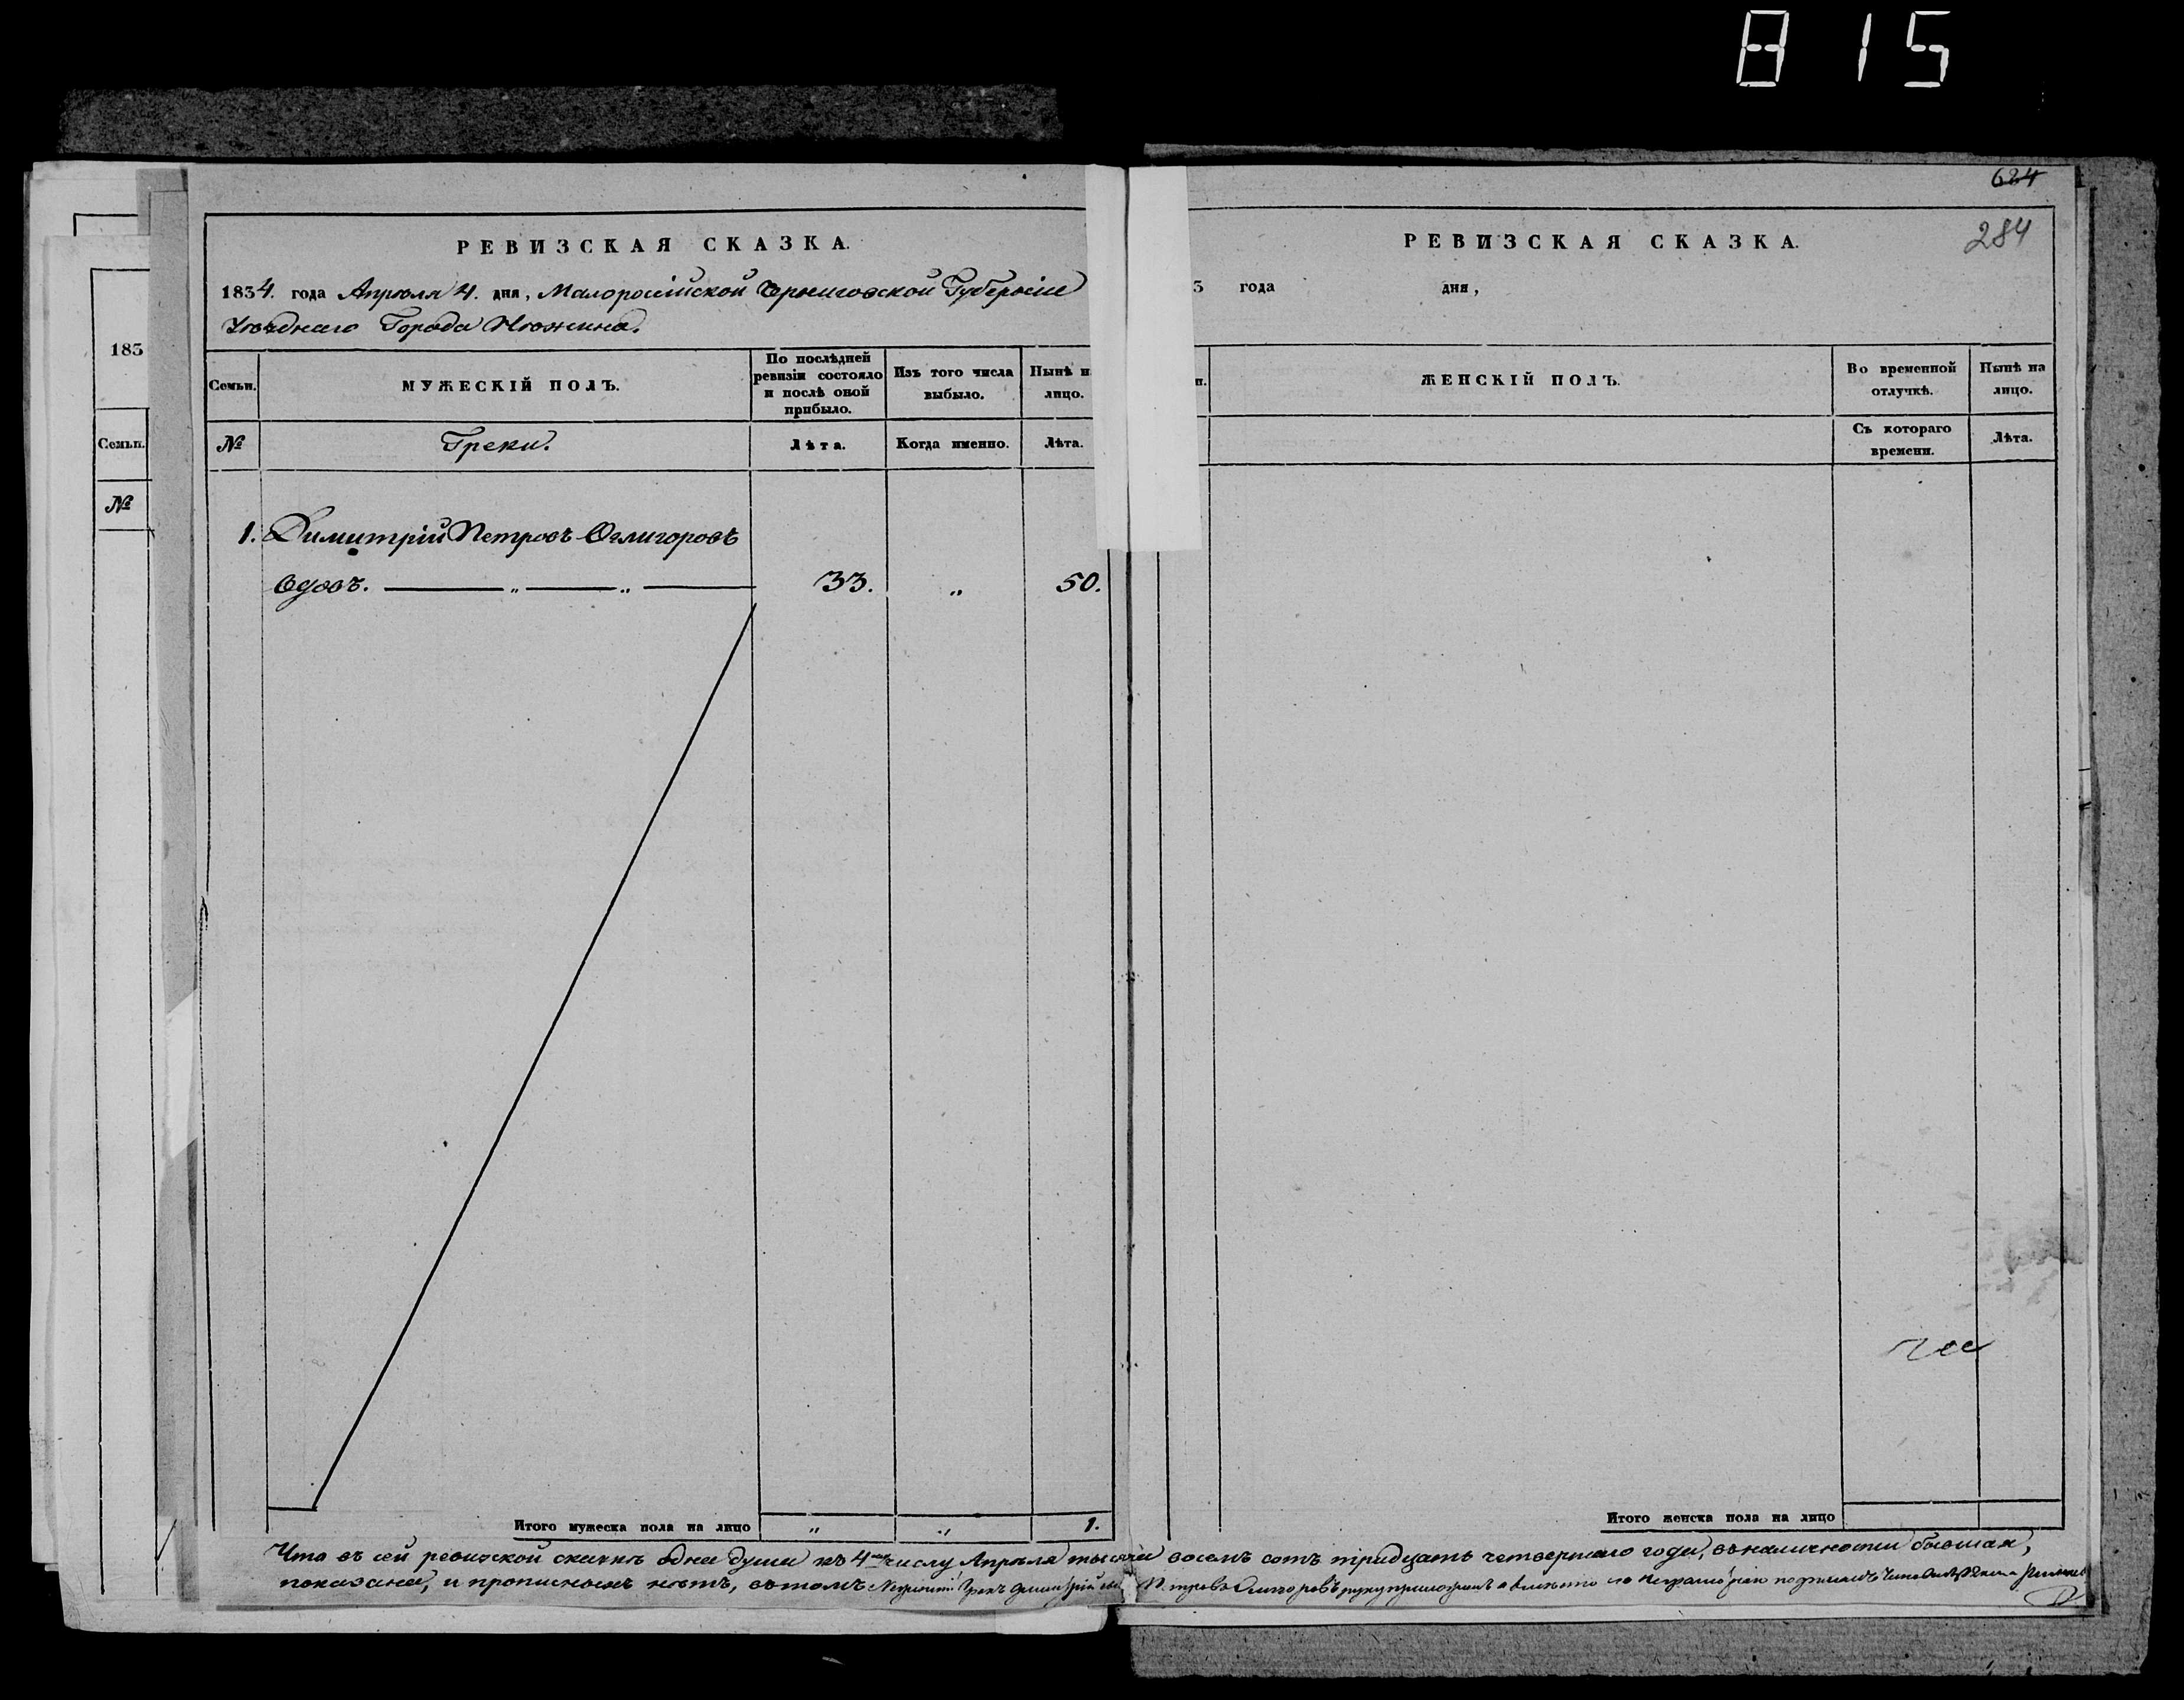 815
624
284
РЕВИЗСКАЯ СКАЗКА.
1834. года Апрѣля 4. дня, Малоросійской Черниговской Губерніи
Уѣзднаго Города Нѣжина.
Семьи.
МУЖЕСКІЙ ПОЛЪ.
По послѣдней ревизіи состояло и послѣ оной прибыло.
Изъ того числа выбыло.
Нынѣ н лицо.
№
Греки.
Лѣта.
Когда именно.
Лѣта.
1. Димитрій Петровъ Оглигоровъ
вдовъ. 33. „ 50.
Итого мужеска пола на лицо „ „ 1.
РЕВИЗСКАЯ СКАЗКА.
3 года дня,
ЖЕНСКІЙ ПОЛЪ.
Во временной отлучкѣ.
Нынѣ на лицо.
Съ котораго времени.
Лѣта.
Итого женска пола на лицо
Что въ сей ревизской сказкѣ одна душа къ 4му числу Апрѣля тысяча восемъ сотъ тридцать четвертаго года, въ наличности бывшая,
показана, и прописныхъ нѣтъ, въ томъ Грекъ Димитрій
183
Семьи.
№